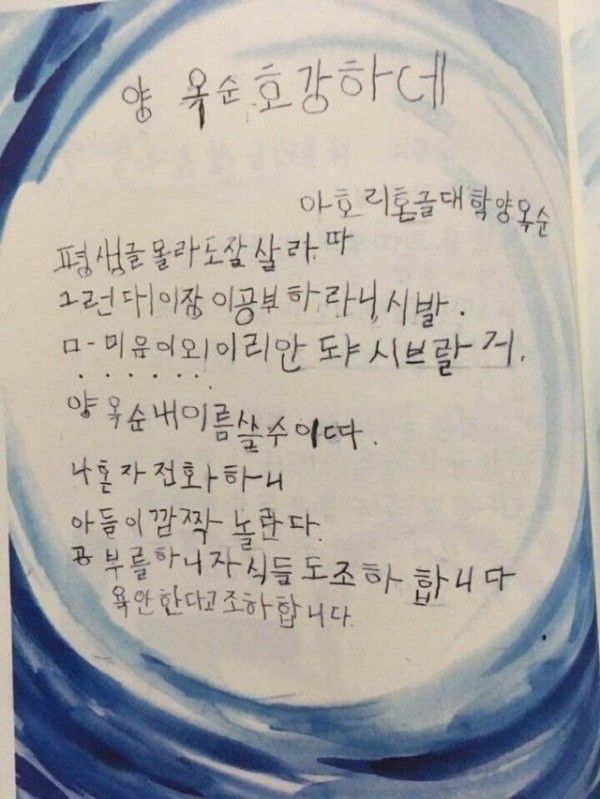 양 옥순 호강하네
아호리혼글대학양옥순
평생글몰라도잘살라따
그런대이장이공부하라니,시발.
ㅁ-미유이외이리안 도야 시브랄 거.
양옥순내이름쓸수이따.
나혼자전화하니
아들이깜짝놀란다.
공부를하니자식들도조하합니다
욕안한다고조하합니다.